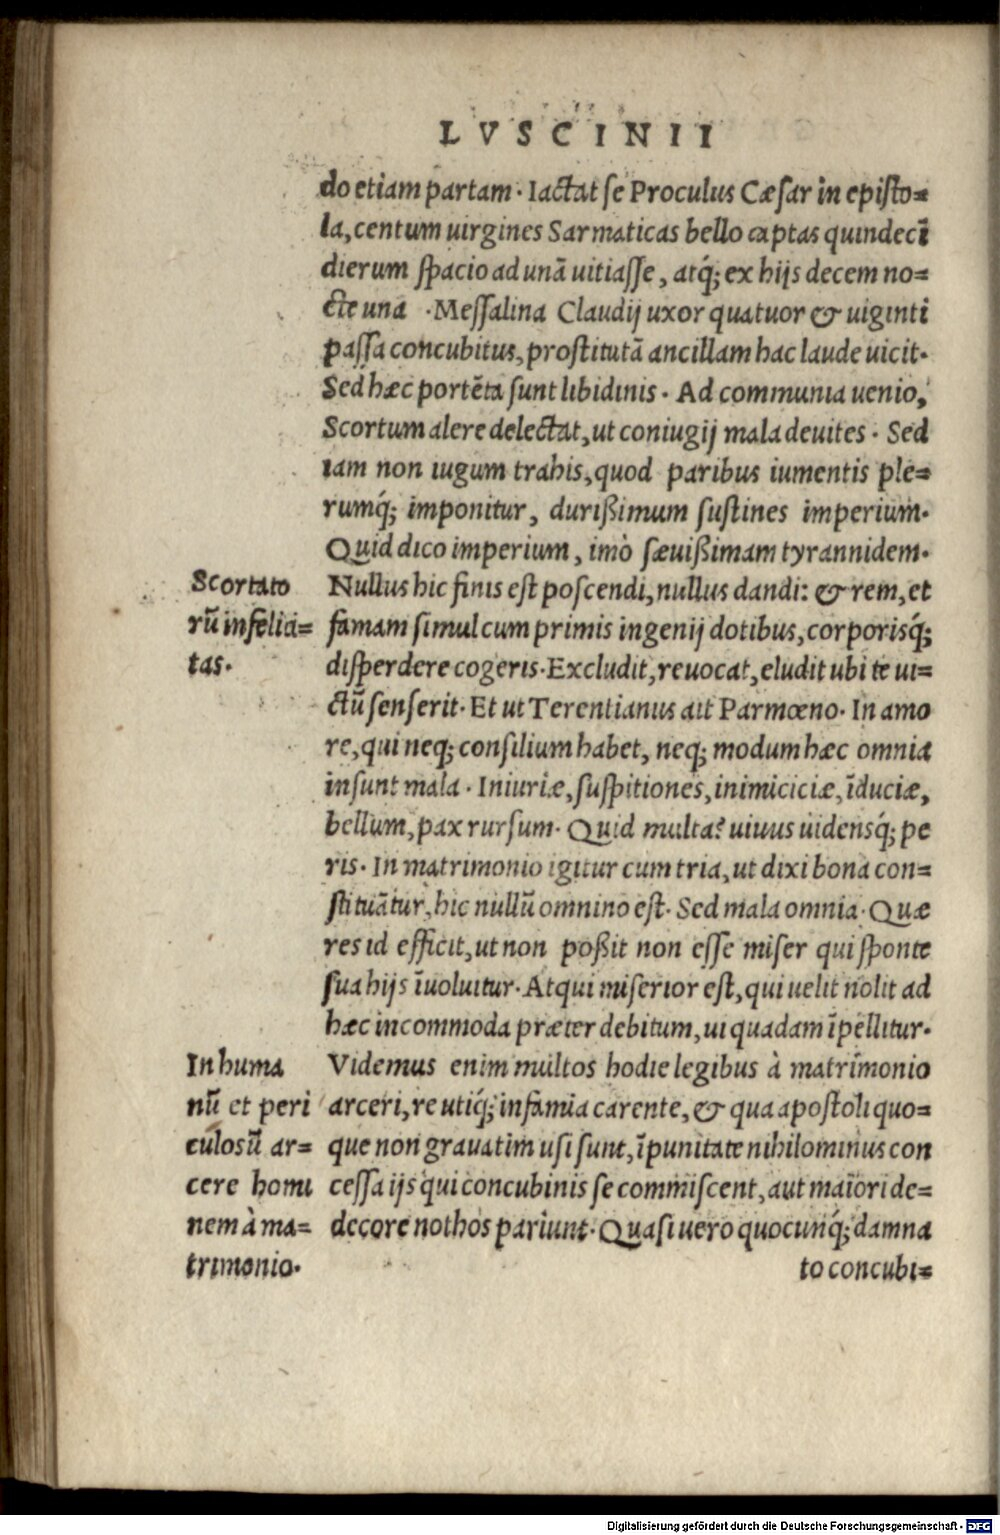 LVSCINII
do etiam partam. Iactat se Proculus Cæsar in episto=
la, centum uirgines Sarmaticas bello captas quindecī
dierum spacio ad unā uitiasse, atq́; ex hijs decem no=
cte una. Messalina Claudij uxor quatuor & uiginti
passa concubitus, prostitutā ancillam hac laude uicit.
Sed hæc portēta sunt libidinis. Ad communia uenio,
Scortum alere delectat, ut coniugij mala deuites. Sed
iam non iugum trahis, quod paribus iumentis ple=
rumq́; imponitur, durißimum sustines imperium.
Quid dico imperium, imò sæuißimam tyrannidem.
Nullus hic finis est poscendi, nullus dandi: & rem, et
famam simul cum primis ingenij dotibus, corporisq́;
disperdere cogeris. Excludit, reuocat, eludit ubi te ui=
ctū senserit. Et ut Terentianus ait Parmœno. In amo
re, qui neq; consilium habet, neq; modum hæc omnia
insunt mala. Iniuriæ, suspitiones, inimiciciæ, īduciæ,
bellum, pax rursum. Quid multa? uiuus uidensq́; pe
ris. In matrimonio igitur cum tria, ut dixi bona con=
stituātur, hic nullū omnino est. Sed mala omnia. Quæ
res id efficit, ut non poßit non esse miser qui sponte
sua hijs īuoluitur. Atqui miserior est, qui uelit nolit ad
hæc incommoda præter debitum, ui quadam īpellitur.
Videmus enim multos hodie legibus à matrimonio
arceri, re utiq́; infamia carente, & qua apostoli quo=
que non grauatim usi sunt, īpunitate nihilominus con
cessa ijs qui concubinis se commiscent, aut maiori de=
decore nothos pariunt. Quasi uero quocunq́; damna
to concubi=
Scortato
rū infelici=
tas.
Inhuma
nū et peri
culosū ar=
cere homi
nem à ma=
trimonio.
Digitalisierung gefördert durch die Deutsche Forschungsgemeinschaft - DFG